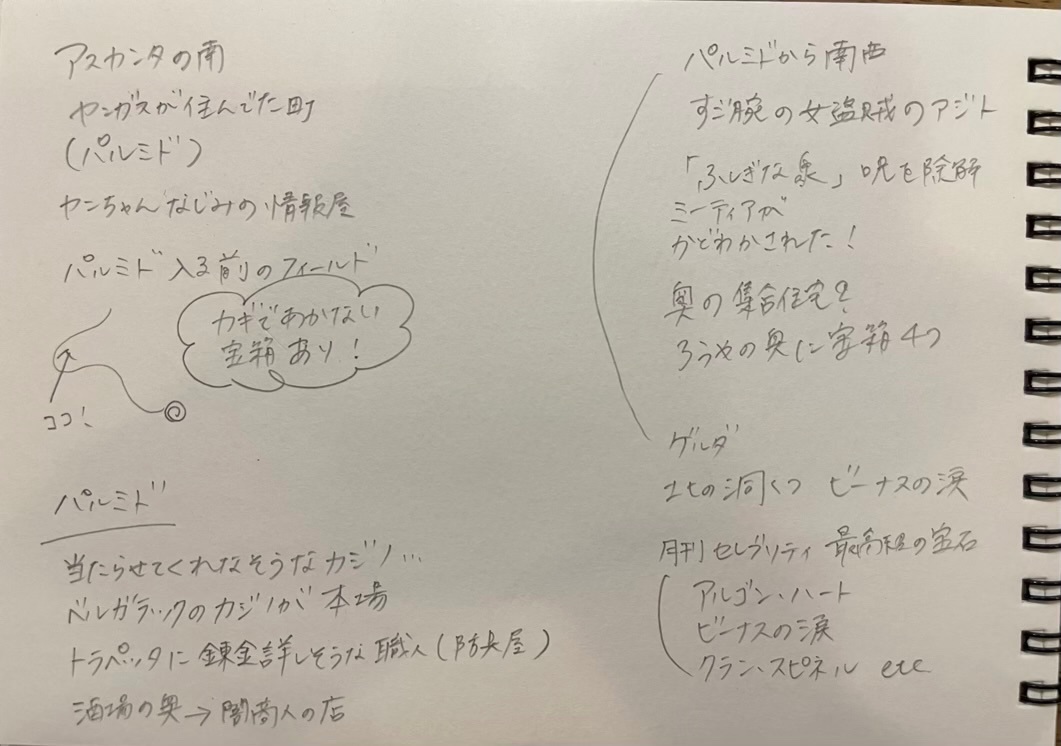 アスカンタの南
ヤンガスが住んでた町
(パルミド)
ヤンちゃんなじみの情報屋
パルミド入る前のフィールド
カギであかない
宝箱あり!
ココ!
パルミド
当たらせてくれなそうなカジノ…
ベルガラックのカジノが本場
トラペッタに錬金詳しそうな職人(防具屋)
酒場の奥→闇商人の店
パルミドから南西
すご腕の女盗賊のアジト
「ふしぎな泉」呪を除解
ミーティアが
かどわかされた!
奥の集合住宅?
ろうやの奥に宝箱4つ
ゲルダ
北の洞くつ ビーナスの涙
月刊セレブリティ 最高級の宝石
アルゴン・ハート
ビーナスの涙
クラン・スピネル etc